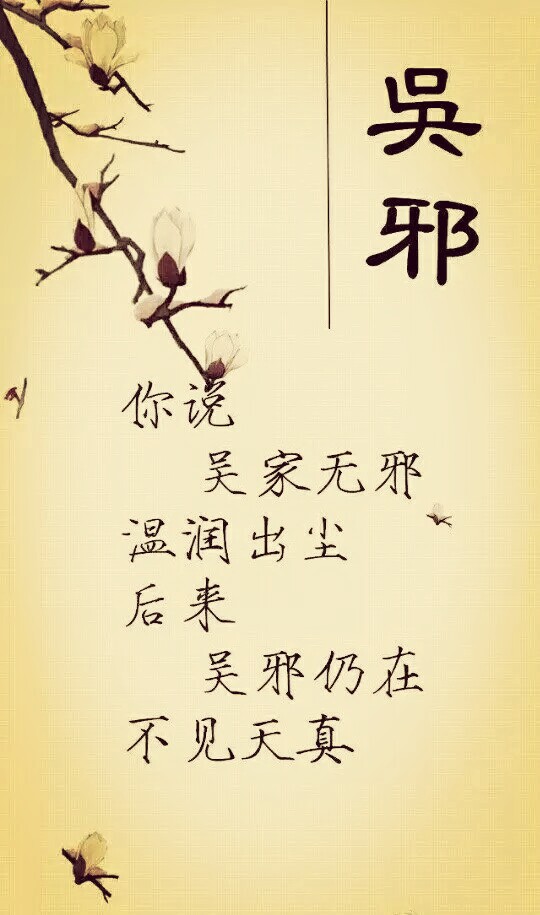 吳邪
你说
吴家无邪
温润出尘
后来
吴邪仍在
不见天真